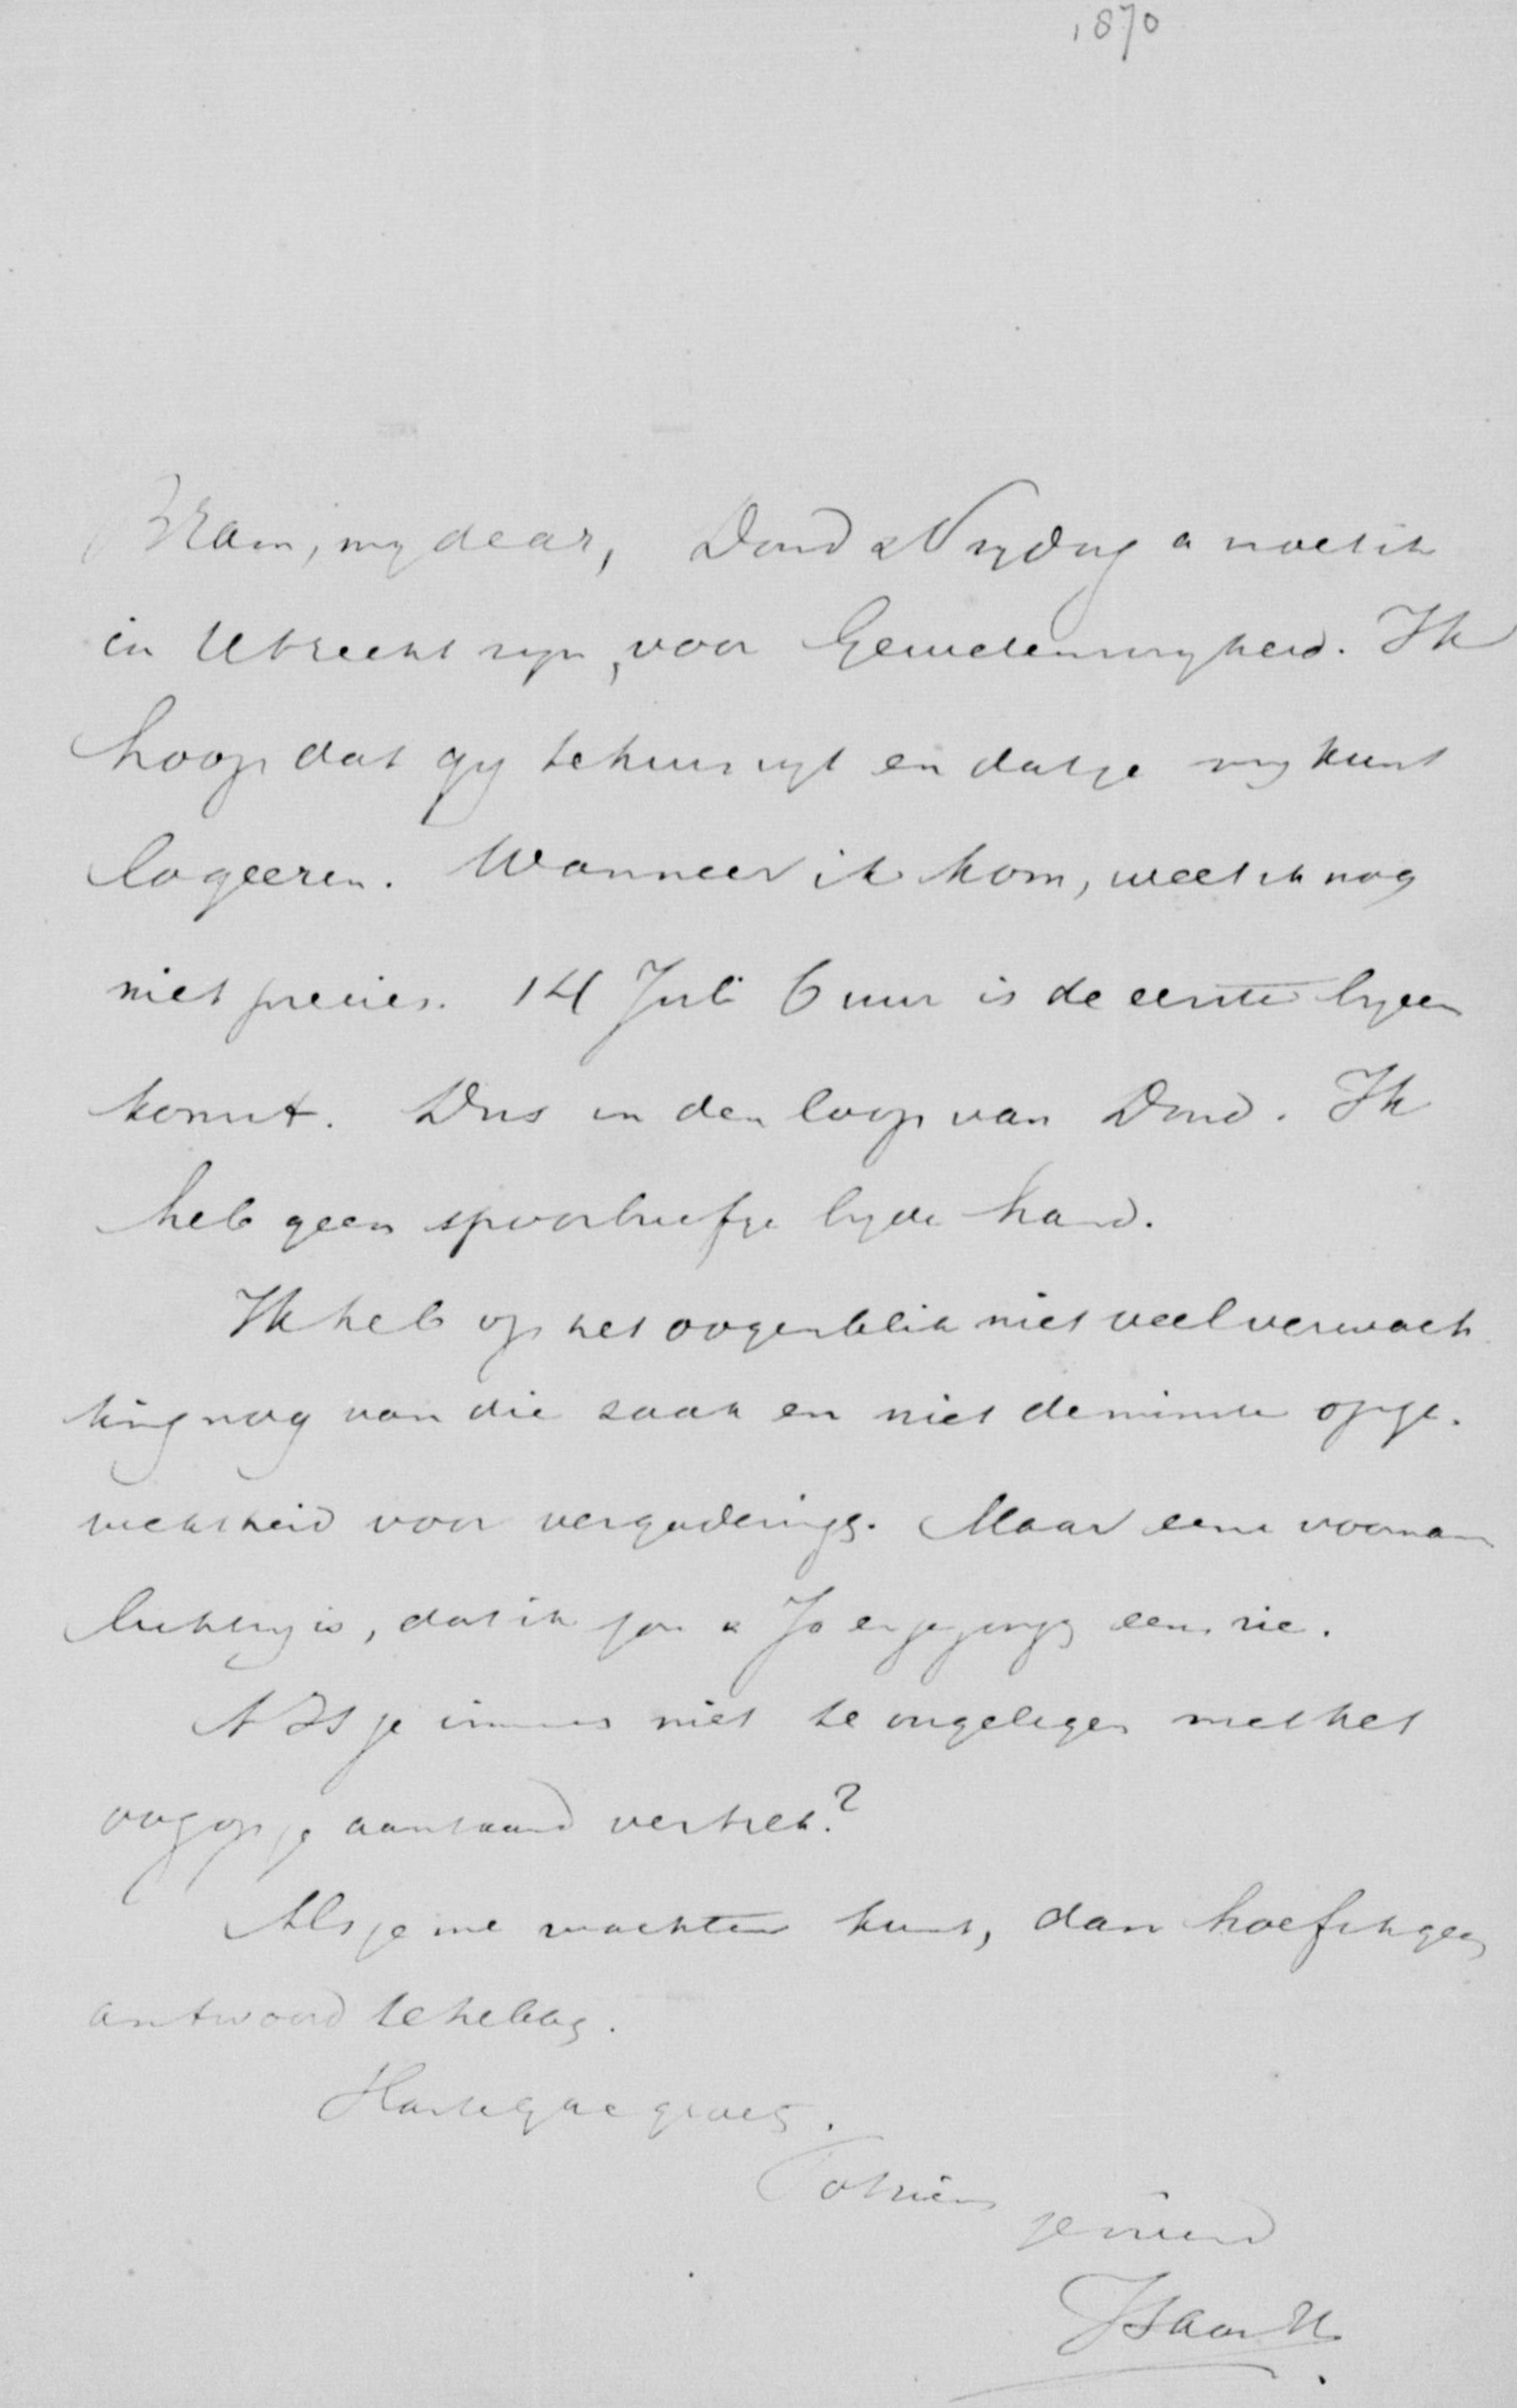 1870
Bram, my dear, Dond & Vrydag a moet ik
in Utrecht zyn, voor Gemeleenigheid. Ik
hoop dat gy tehuis zyt en dat je my kunt
logeeren. Wanneer ik kom, weet ik nog
niet precies. 14 Juli 6 uur is de eerste byeen
komst. Dus in den loop van Dond. Ik
heb geen spoorbriefje by de hand.
Ik heb op het oogenblik niet veel verwach
ting nog van die zaak en niet de minste opge-
wektheid voor vergaderings. Maar eene voorna
luchting is, dat ik jou & Jo en je jongs eens zie.
Is je immers niet te ongelegen met het
oog op je aanstaand vertrek?
Als je me wachten kunt, dan hoef ik geen
antwoord te hebben.
Hartelyke groet.
Tot ziens
je vriend
Isaac